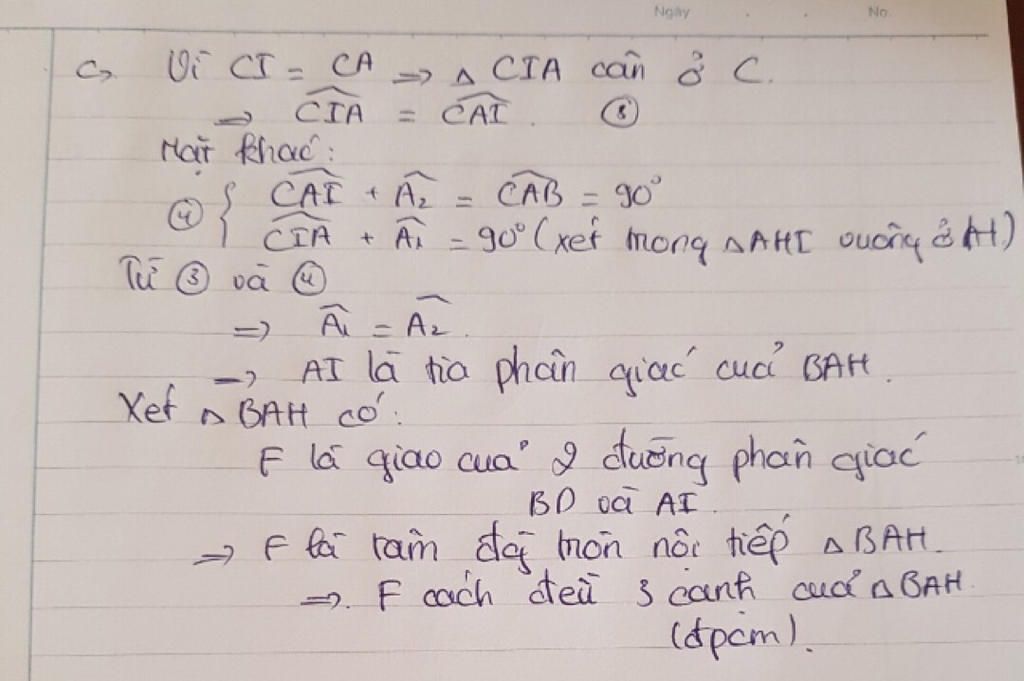 Ngày . . No.
c, Vì CI = CA => △ CIA cân ở C.
=> \widehat{CIA} = \widehat{CAI}. ③
Mặt khác:
④ { \widehat{CAI} + \widehat{A₂} = \widehat{CAB} = 90°
\widehat{CIA} + \widehat{A₁} = 90° (xét trong △AHI vuông ở H)
Từ ③ và ④
=> \widehat{A₁} = \widehat{A₂}.
=> AI là tia phân giác của BAH.
Xét △ BAH có:
F là giao của 2 đường phân giác
BD và AI.
=> F là tâm đg tròn nội tiếp △BAH.
=> F cách đều 3 cạnh của △BAH.
(đpcm).